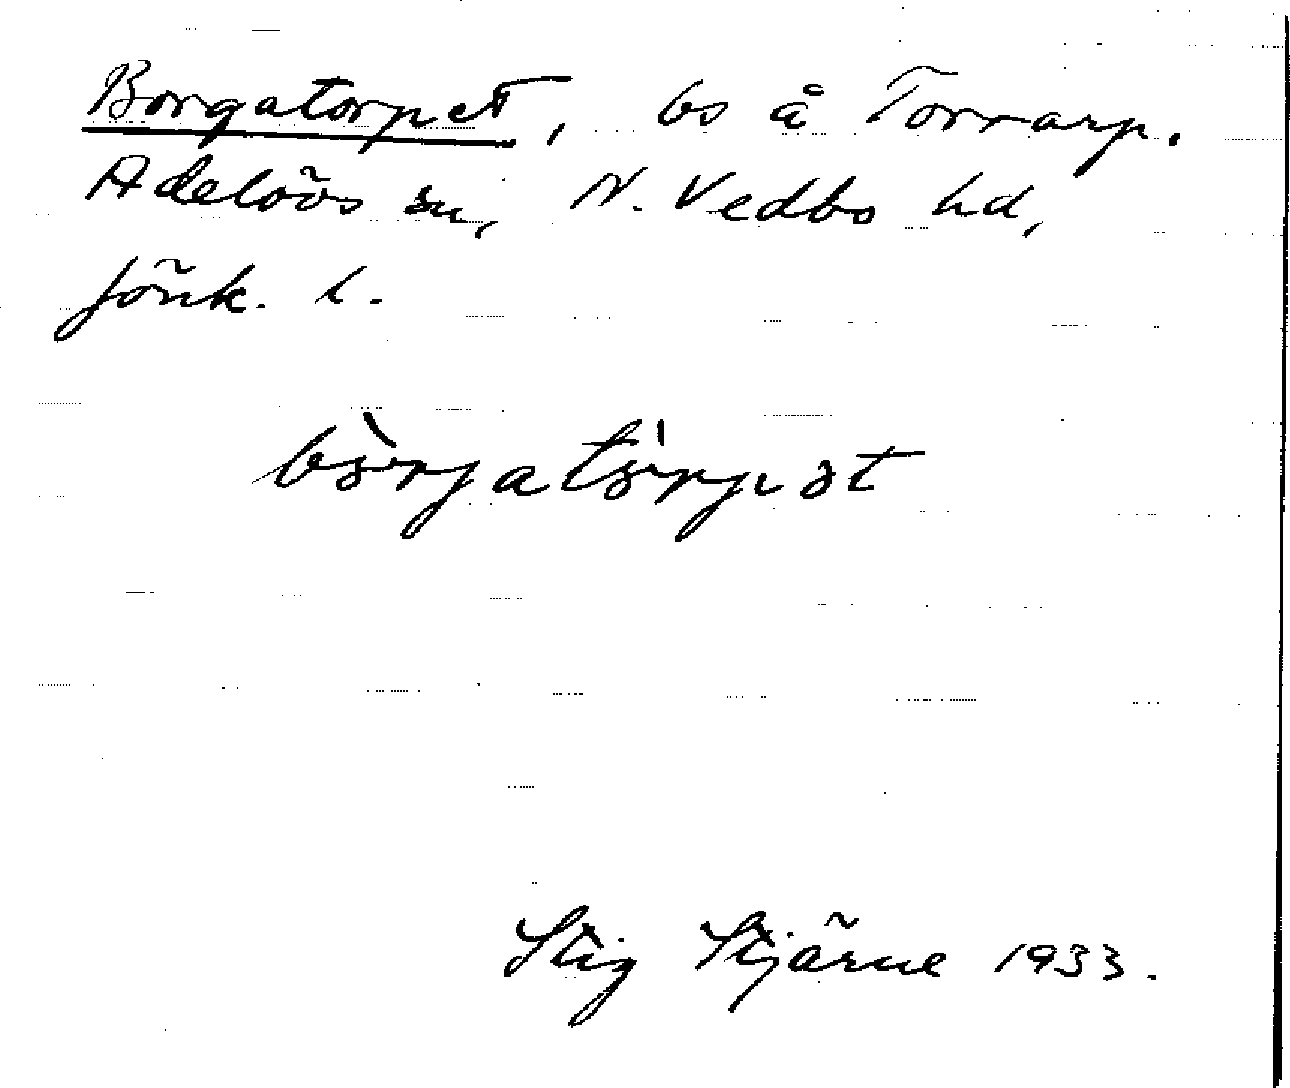 Borgatorpet, bs å Torrarp.
Adelövs sn, N. Vedbo hd,
Jönk. l.
bòrjatór̥pət
Stig Stjärne 1933.